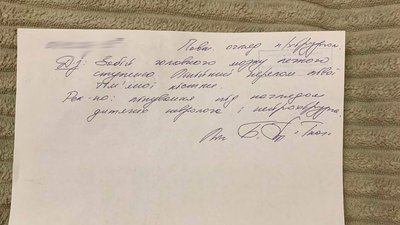 Повт. огляд н/хірурга
Ds: Забій головного мозку легкого
ступеню. Лінійний перелом лівої
тім'яної кістки.
Рек-но: лікування під наглядом
дитячого невролога і нейрохірурга.